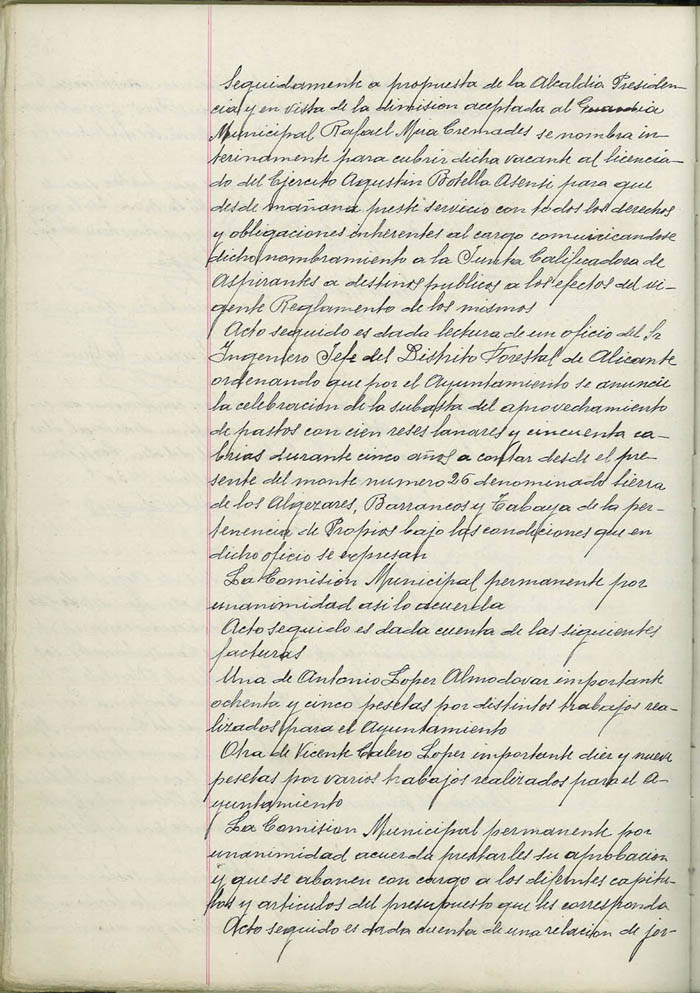 Seguidamente a propuesta de la Alcaldia Presiden-
cia y en vista de la dimision aceptada al Guardia
Municipal Rafael Mira Cremades se nombra in-
terinamente para cubrir dicha vacante al licencia-
do del Ejercito Agustin Botella Asensi para que
desde mañana preste servicio con todos los derechos
y obligaciones inherentes al cargo comunicandose
dicho nombramiento a la Junta Calificadora de
Aspirantes a destinos publicos a los efectos del vi-
gente Reglamento de los mismos
Acto seguido es dada lectura de un oficio del Sr
Ingeniero Jefe del Distrito Forestal de Alicante
ordenando que por el Ayuntamiento se anuncie
la celebracion de la subasta del aprovechamiento
de pastos con cien reses lanares y cincuenta ca-
brias durante cinco años a contar desde el pre-
sente del monte numero 25 denominado Sierra
de los Algezares, Barrancos y Tabaya de la per-
tenencia de Propios bajo las condiciones que en
dicho oficio se expresan
La Comision Municipal permanente por
unanimidad asi lo acuerda
Acto seguido es dada cuenta de las siguientes
facturas
Una de Antonio Lopez Almodovar importante
ochenta y cinco pesetas por distintos trabajos rea-
lizados para el Ayuntamiento
Otra de Vicente Calero Lopez importante diez y nueve
pesetas por varios trabajos realizados para el A-
yuntamiento
La Comision Municipal permanente por
unanimidad acuerda prestarles su aprobacion
y que se abonen con cargo a los difentes capitu-
los y articulos del presupuesto que les corresponda
Acto seguido es dada cuenta de una relacion de jor-